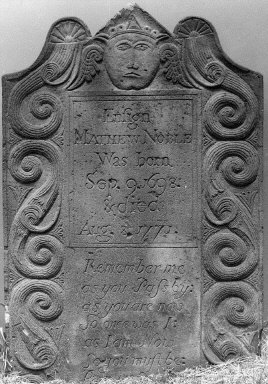 Ensign
MATHEW NOBLE
Was born
Sep. 9. 1698.
& died
Aug. 1771.
Remember me
as you Pass by:
as you are now
So once was I:
as I am Now
So you must be: